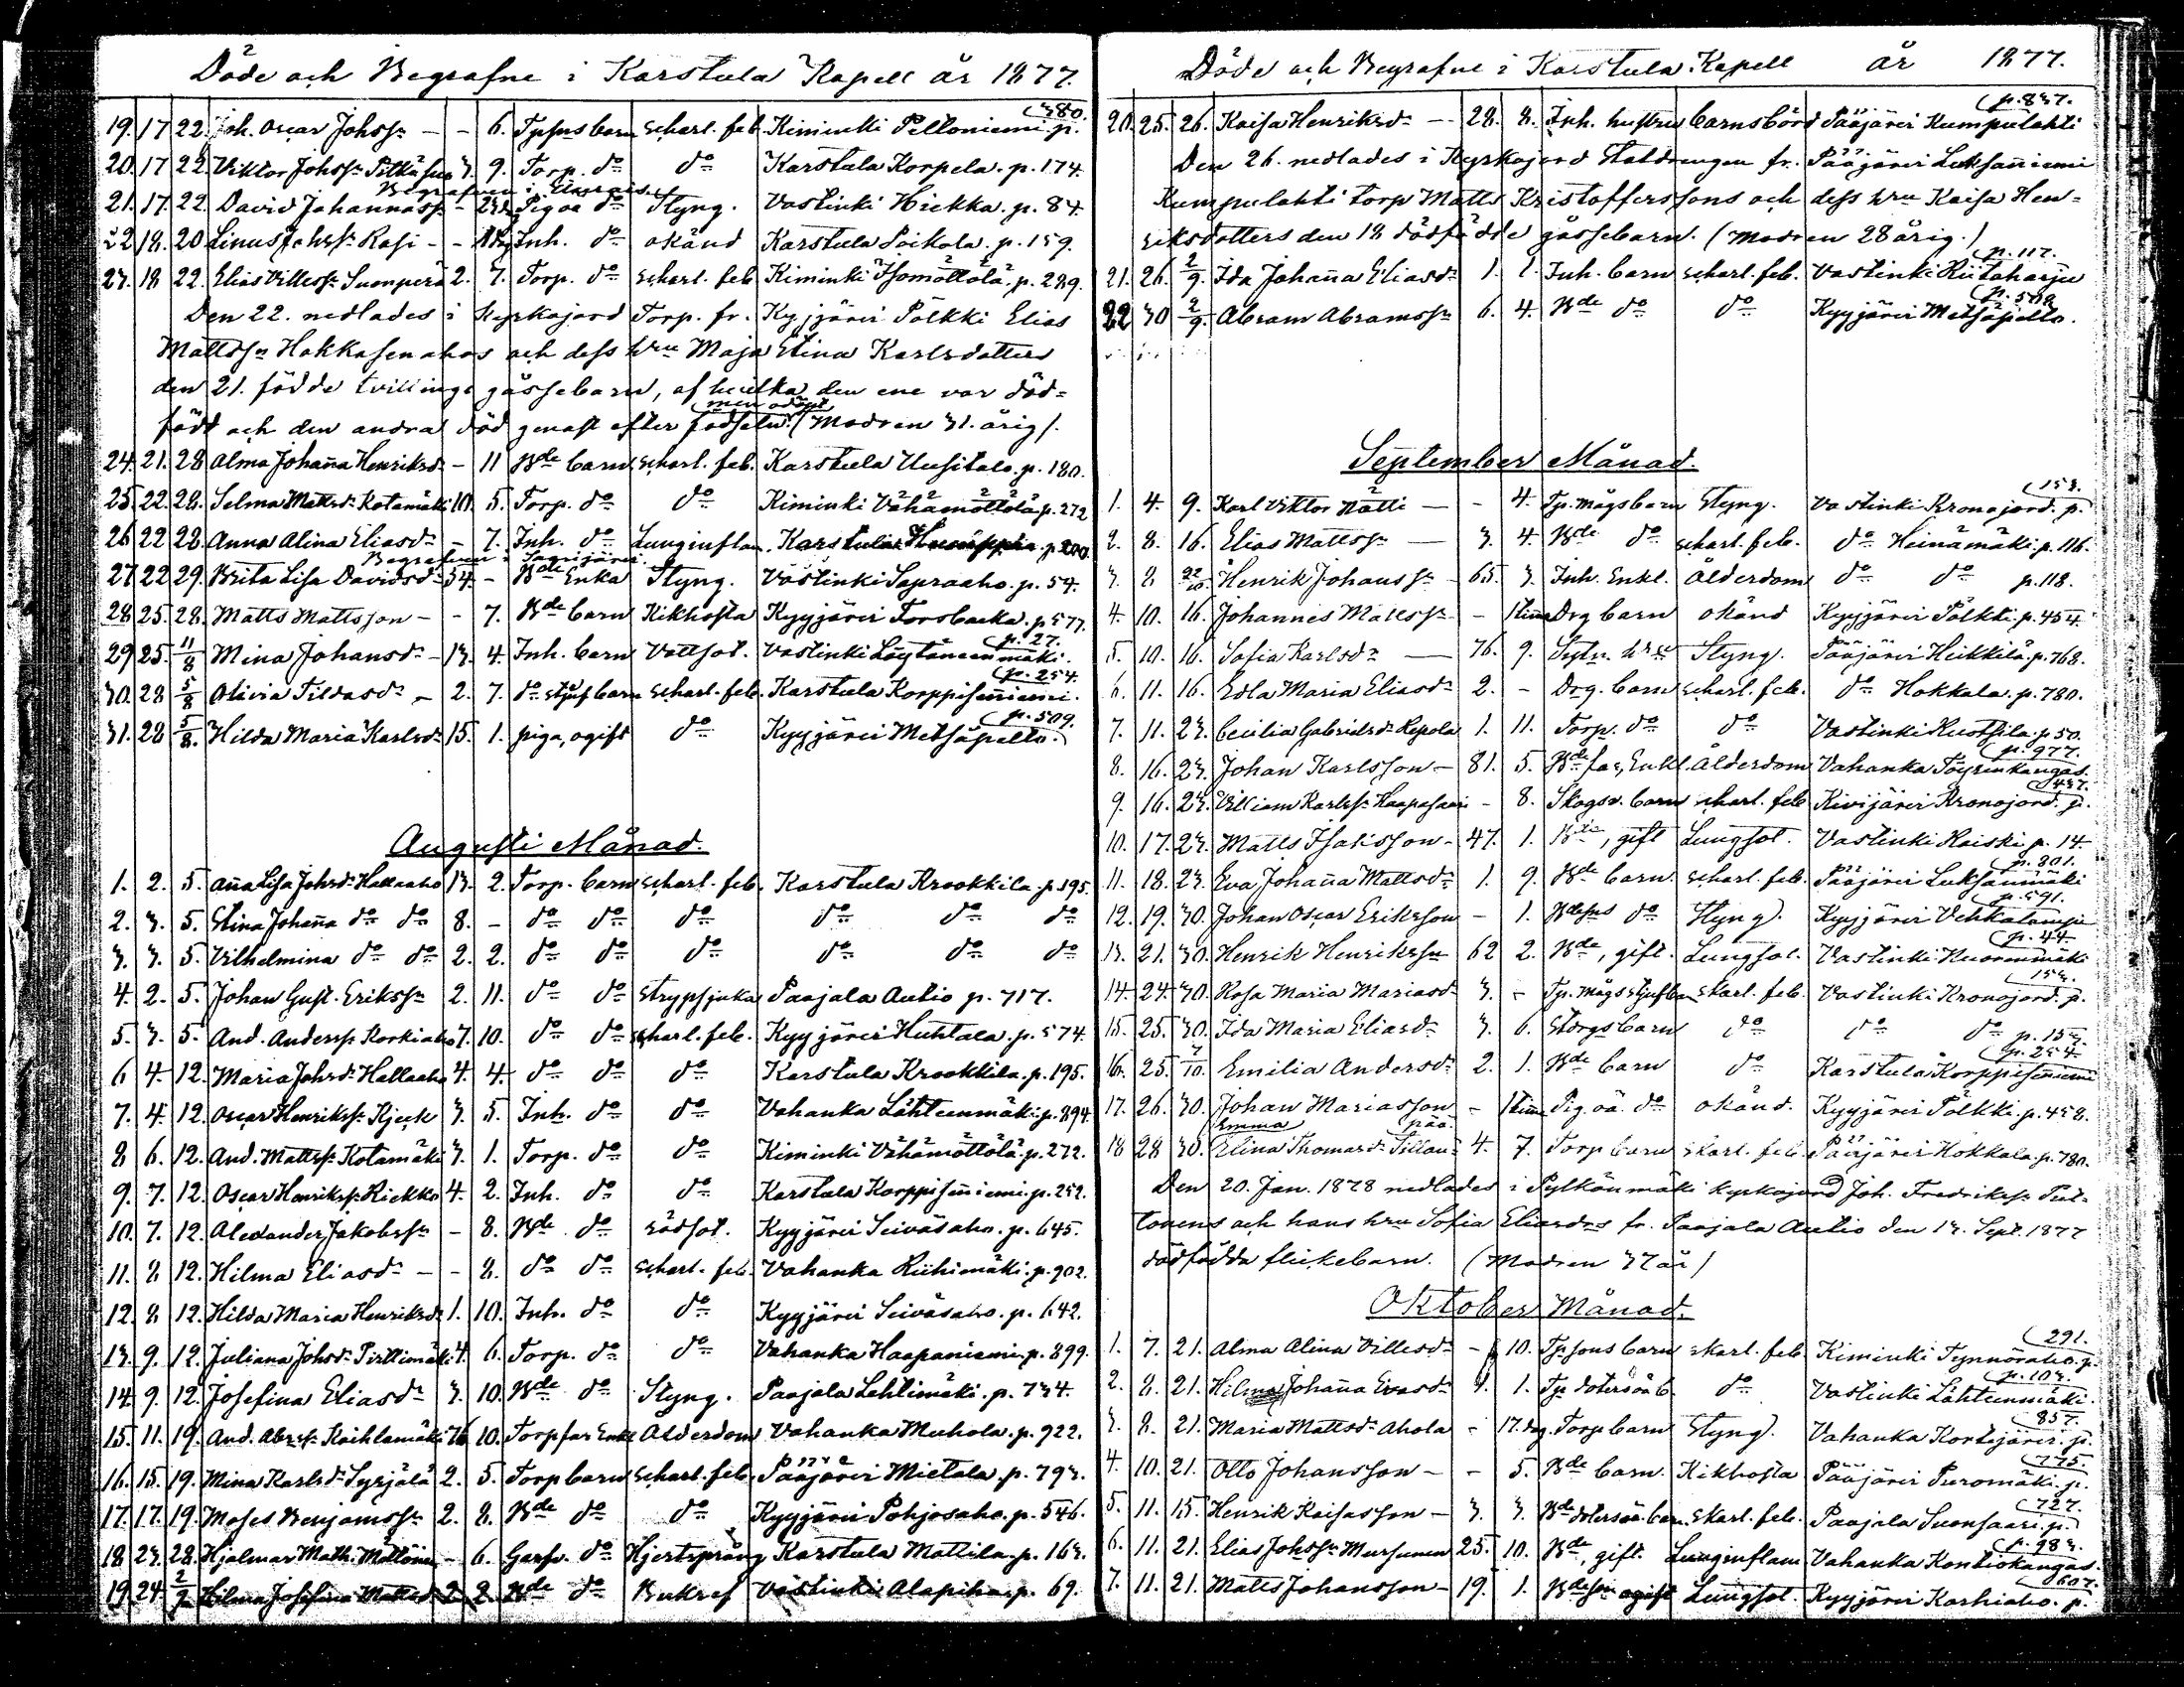 Döde och Begrafne i Karstula Kapell år 1877.
380.
19. 17 22. Joh. Oscar Johss: - - 6. Tpsns barn scharl. feb. Kiminki Peltoniemi p.
20. 17 22. Viktor Johss: Pitkäsen 3. 9. Torp. do do Karstula Korpela. p. 174.
Begrafven i
21. 17. 22. David Johannass: - Pigoä do Styng. Vastinki Hiekka. p. 84.
22 18. 20 Linus Johss: Rasi - - Inh. do okänd Karstula Poikola. p. 159.
23. 18 22. Elias Villess: Suonperä 2. 7. Torp. do scharl. feb. Kiminki Isomöttölä. p. 289.
Den 22. nedlades i Kyrkojord Torp. fr. Kyyjärvi Pölkki Elias
Mattss: Hokkasenahos och dess hru Maja Stina Karlsdotters
den 21. födde tvillinge gåssebarn, af hvilka den ene var död=
men odöpt
född och den andra död genast efter födseln. (Modren 31. årig).
24. 21. 28 Alma Johaña Henriksd: - 11 Bde barn scharl. feb. Karstula Uusitalo. p. 180.
25. 22. 28. Selma Mattsd: Kotamäki 10. 5. Torp. do do Kiminki Vähämöttölä p. 272
26 22 28 Anna Alina Eliasd: - 7. Inh. do Lunginflam. Karstula p. 200.
Begrafven i
27 22 29. Brita Lisa Davidsd: 54. - Bde Enka Styng. Vastinki Sapraaho. p. 54.
28 25. 28. Matts Mattsson - - 7. Bde barn Kikhosta Kyyjärvi Forsbacka. p 577.
p. 27.
29 25. 11/8 Mina Johansd: - 13. 4. Inh. barn Vattsot. Vastinki Löytäneenmäki.
p. 254.
30. 28 5/8 Olivia Tildasd: - 2. 7. do stjuf barn scharl. feb. Karstula Korppiseniemi.
p. 509.
31. 28 5/8. Hilda Maria Karlsd: 15. 1. piga, ogift do Kyyjärvi Metsäpelto.
Augusti Månad.
1. 2. 5. Aña Lisa Johsd: Hallaaho 13. 2. Torp. barn scharl. feb. Karstula Krookkila. p. 195.
2. 3. 5. Stina Johaña do do 8. - do do do do do do
3. 3. 5. Vilhelmina do do 2. 2. do do do do do do
4. 2. 5. Johan Gust. Erikss: 2. 11. do do Strypsjuka Paajala Autio p. 717.
5. 3. 5. And. Anderss: Korkiaho 7. 10. do do scharl. feb. Kyyjärvi Huhtala. p. 574.
6 4. 12. Maria Johsd: Hallaaho 4. 4. do do do Karstula Krookkila. p. 195.
7. 4. 12. Oscar Henrikss: Kjeck 3. 5. Inh. do do Vahanka Lähteenmäki p. 894.
8 6. 12. And. Mattss: Kotamäki 3. 1. Torp. do do Kiminki Vähämöttölä. p. 272.
9. 7. 12. Oscar Henrikss: Kiekko 4. 2. Inh. do do Karstula Korppiseniemi. p. 252.
10. 7. 12. Alexander Jakobss: - 8. Bde do rödsot. Kyyjärvi Seiväsaho. p. 645.
11. 8 12. Hilma Eliasd: - - 8. do do scharl. feb. Vahanka Riihimäki. p. 902.
12. 8 12. Hilda Maria Henriksd: 1. 10. Inh. do do Kyyjärvi Seiväsaho. p. 642.
13. 9. 12. Juliana Johsd: Pirttimäki 4. 6. Torp. do do Vahanka Haapaniemi p. 899.
14. 9. 12. Josefina Eliasd: 3. 10. Bde do Styng. Paajala Lehtimäki. p. 734.
15. 11. 19. And. Abrss: Koihlamäki 76 10. Torpfar Enkl Ålderdom Vahanka Muhola. p. 922.
16. 15. 19. Mina Karlsd: Syrjälä 2. 5. Torp barn scharl. feb. Pääjärvi Mietala. p. 793.
17. 17. 19. Moses Benjamss: 2. 8. Bde do do Kyyjärvi Pohjosaho. p. 546.
18 23. 28. Hjalmar Math. Möttönen - 6. Garfv. do Hjertsprång Karstula Mattila. p. 163.
19. 24. 2/9 Hilma Josefina Mattsd: 2. 2. Bde do Bukref Vastinki Alapiha p. 69.
Döde och Begrafne i Karstula Kapell år 1877.
p. 837.
20. 25. 26. Kaisa Henriksd: - 28. 8. Inh. hustru barnsbörd Pääjärvi Kumpulahti
Den 26. nedlades i Kyrkojord Statdrengen fr. Pääjärvi Luksanniemi
Kumpulahti torp Matts Kristofferssons och dess hru Kaisa Hen=
riksdotters den 18 dödfödde gåssebarn. (Modren 28 årig.)
p. 117.
21. 26. 2/9. Ida Johaña Eliasd: 1. 1. Inh. barn scharl. feb. Vastinki Riitaharju
p. 509
22 30 2/9. Abram Abramss: 6. 4. Bde do do Kyyjärvi Metsäpelto.
September Månad.
153.
1. 4. 9. Karl Viktor Nätti - - 4. Tp. mågs barn Styng. Vastinki Kronojord. p.
2. 8. 16. Elias Mattss: - 3. 4. Bde do scharl. feb. do Heinämäki p. 116.
3. 8 22/10. Henrik Johanss: - 65. 3. Inh. Enkl. Ålderdom do do p. 118.
4. 10. 16. Johannes Mattss: - 1 tima Drg barn okänd Kyyjärvi Pölkki. p. 454.
5. 10. 16. Sofia Karlsd: - 76. 9. Sytn. hru Styng. Pääjärvi Heikkilä. p. 768.
6. 11. 16. Edla Maria Eliasd: 2. - Drg. barn scharl. feb. do Hokkala. p. 780.
7. 11. 23. Cecilia Gabrielsd: Repola 1. 11. Torp. do do Vastinki Rustsila. p 50.
p. 977.
8. 16. 23. Johan Karlsson - 81. 5. Bde far, Enkl. Ålderdom Vahanka Töyrinkangas.
437.
9. 16. 23. Villiam Karlss: Haapasaari - 8. Skogsv. barn scharl. feb Kivijärvi Kronojord. p.
10. 17. 23. Matts Isaksson - 47. 1. Bde, gift Lungsot. Vastinki Raiski p. 14.
p. 801.
11. 18. 23. Eva Johaña Mattsd: 1. 9. Bde barn. scharl. feb. Pääjärvi Luksanmäki
p. 591.
12. 19. 30. Johan Oscar Eriksson - 1. Bdesns do Styng. Kyyjärvi Vehkalampi
p. 44.
13. 21. 30. Henrik Henriksson 62 2. Bde, gift. Lungsot. Vastinki Huorinmäki
153.
14. 24. 30. Rosa Maria Mariasd: 3. - Tp. mågs stjufba skarl. feb. Vastinki Kronojord. p.
15. 25. 30. Ida Maria Eliasd: 3. 6. Storgs barn do do do p. 153.
p. 254.
16. 25. 7/10. Emilia Andersd: 2. 1. Bde barn do Karstula Korppiseniemi
17. 26. 30. Johan Mariasson - 1 tim Pig oä. do okänd. Kyyjärvi Pölkki. p. 458.
Emma pää.
18 28 30. Elina Thomasd: Tillan= 4. 7. Torp barn skarl. feb. Pääjärvi Hokkala. p. 780.
Den 20. Jan. 1878 nedlades i Pylkönmäki kyrkojord Joh. Fredrikss: Put=
tonens och hans hru Sofia Eliasdrs fr. Paajala Autio den 13. Sept. 1877
dödfödda flickebarn. (Modren 37 år)
Oktober Månad.
291.
1. 7. 21. Alma Alina Villesd: - 10. Tp. sons barn skarl. feb. Kiminki Tynnöraho. p.
p. 103.
2. 8. 21. Hilma Johaña Evasd: 4. 1. Tp. doters oä b. do Vastinki Lähteenmäki.
857.
3. 8. 21. Maria Mattsd: Ahola - 17. dag. Torp barn Styng. Vahanka Kortejärvi. p.
775.
4. 10. 21. Otto Johansson - - 5. Bde barn. Kikhosta Pääjärvi Puromäki. p.
727.
5. 11. 15. Henrik Kaisasson - 3. 3. Bde doters oä barn. skarl. feb. Paajala Suonsaari. p.
p. 983.
6. 11. 21. Elias Johss: Mursunen 25. 10. Bde, gift. Lunginflam Vahanka Kontiokangas.
607.
7. 11. 21. Matts Johansson - 19. 1. Bdeson ogift Lungsot. Kyyjärvi Koskiaho. p.